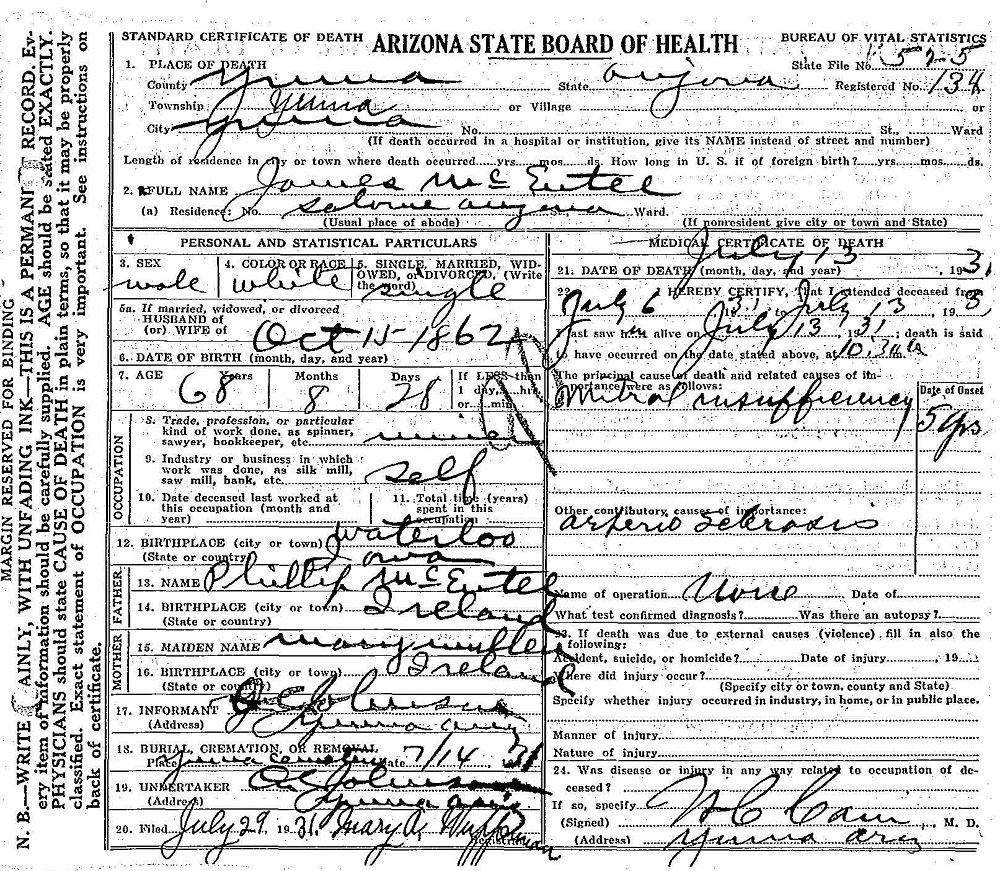 MARGIN RESERVED FOR BINDING
N. B.—WRITE PLAINLY, WITH UNFADING INK—THIS IS A PERMANENT RECORD. Ev-
ery item of information should be carefully supplied. AGE should be stated EXACTLY.
PHYSICIANS should state CAUSE OF DEATH in plain terms, so that it may be properly
classified. Exact statement of OCCUPATION is very important. See instructions on
back of certificate.
STANDARD CERTIFICATE OF DEATH ARIZONA STATE BOARD OF HEALTH BUREAU OF VITAL STATISTICS
1. PLACE OF DEATH State File No. 525
County Yuma State Arizona Registered No. 134
Township Yuma or Village or
City Yuma No. St., Ward
(If death occurred in a hospital or institution, give its NAME instead of street and number)
Length of residence in city or town where death occurred yrs. mos. ds. How long in U. S. if of foreign birth? yrs. mos. ds.
2. FULL NAME James McEntee
(a) Residence: No. Salome Arizona St. Ward.
(Usual place of abode) (If nonresident give city or town and State)
PERSONAL AND STATISTICAL PARTICULARS
3. SEX male
4. COLOR OR RACE white
5. SINGLE, MARRIED, WID-
OWED, or DIVORCED, (Write
the word) single
5a. If married, widowed, or divorced
HUSBAND of
(or) WIFE of
Oct 15-1862
6. DATE OF BIRTH (month, day, and year)
7. AGE 68 Years 8 Months 28 Days If LESS than
1 day, hrs.
or min.
OCCUPATION
8. Trade, profession, or particular
kind of work done, as spinner,
sawyer, bookkeeper, etc. miner
9. Industry or business in which
work was done, as silk mill,
saw mill, bank, etc. self
10. Date deceased last worked at
this occupation (month and
year)
11. Total time (years)
spent in this
occupation
12. BIRTHPLACE (city or town) Waterloo
(State or country) Iowa
FATHER
13. NAME Phillip McEntee
14. BIRTHPLACE (city or town) Ireland
(State or country)
MOTHER
15. MAIDEN NAME Mary
16. BIRTHPLACE (city or town) Ireland
(State or country)
17. INFORMANT Johnson
(Address) Yuma Ariz
18. BURIAL, CREMATION, OR REMOVAL
Place Yuma Cemetery Date 7/14 31
19. UNDERTAKER Johnson
(Address) Yuma Ariz
20. Filed July 29, 1931. Mary
Registrar
MEDICAL CERTIFICATE OF DEATH
21. DATE OF DEATH (month, day, and year) July 13 1931
22. I HEREBY CERTIFY, That I attended deceased from
July 6 31, to July 13 1931
I last saw him alive on July 13 1931; death is said
to have occurred on the date stated above, at 10:30 a
The principal cause of death and related causes of im-
portance were as follows: Date of Onset
Mitral insufficiency 5 yrs
Other contributory causes of importance:
arterio sclerosis
Name of operation None Date of
What test confirmed diagnosis? Was there an autopsy?
23. If death was due to external causes (violence) fill in also the
following:
Accident, suicide, or homicide? Date of injury , 19
Where did injury occur?
(Specify city or town, county and State)
Specify whether injury occurred in industry, in home, or in public place.
Manner of injury
Nature of injury
24. Was disease or injury in any way related to occupation of de-
ceased?
If so, specify
(Signed) , M. D.
(Address) Yuma Ariz